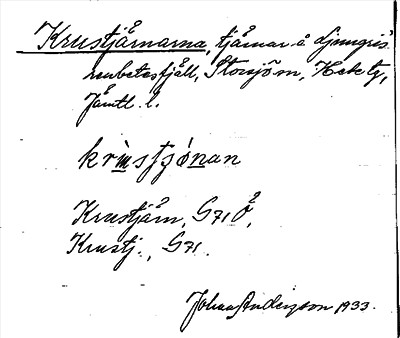 Krustjärnarna, tjärnar å Ljungris
renbetesfjäll, Storsjöm, Hede tg,
Jämtl. l.
krùstjǿnan
Krustjärn, G71 Ö,
Krustj., G71.
Johan Anderzson 1933.